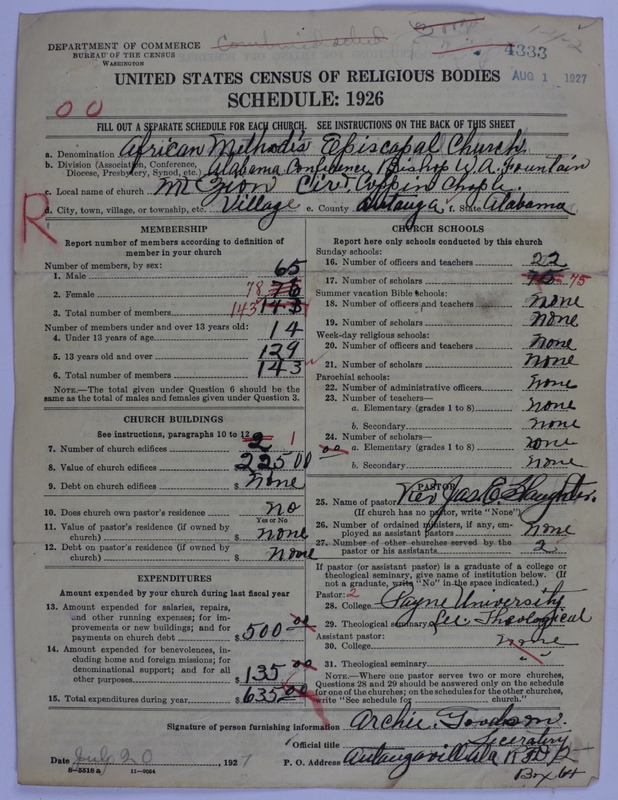 DEPARTMENT OF COMMERCE
BUREAU OF THE CENSUS
WASHINGTON
4333
AUG 1 1927
UNITED STATES CENSUS OF RELIGIOUS BODIES
SCHEDULE: 1926
FILL OUT A SEPARATE SCHEDULE FOR EACH CHURCH. SEE INSTRUCTIONS ON THE BACK OF THIS SHEET
a. Denomination African Methodis Episcopal Church
b. Division (Association, Conference, Diocese, Presbytery, Synod, etc.) Alabama Conference Bishop W. A. Fountain
c. Local name of church Mt Zion Circt Coppin Chaple
R
d. City, town, village, or township, etc. Village e. County Autauga f. State Alabama
MEMBERSHIP
Report number of members according to definition of
member in your church
Number of members, by sex:
1. Male 65
2. Female 78
3. Total number of members 143
Number of members under and over 13 years old:
4. Under 13 years of age 14
5. 13 years old and over 129
6. Total number of members 143
NOTE.—The total given under Question 6 should be
same as the total of males and females given under Question 3.
CHURCH BUILDINGS
See instructions, paragraphs 10 to 12
7. Number of church edifices 2 1
8. Value of church edifices $ 225000
9. Debt on church edifices $ None
10. Does church own pastor's residence no
Yes or No
11. Value of pastor's residence (if owned by
church) $ none
12. Debt on pastor's residence (if owned by
church) $ none
EXPENDITURES
Amount expended by your church during last fiscal year
13. Amount expended for salaries, repairs,
and other running expenses; for im-
provements or new buildings; and for
payments on church debt $ 500 00
14. Amount expended for benevolences, in-
cluding home and foreign missions; for
denominational support; and for all
other purposes $ 135 00
15. Total expenditures during year $ 635 00
CHURCH SCHOOLS
Report here only schools conducted by this church
Sunday schools:
16. Number of officers and teachers 22
17. Number of scholars 75 75
Summer vacation Bible schools:
18. Number of officers and teachers none
19. Number of scholars none
Week-day religious schools:
20. Number of officers and teachers none
21. Number of scholars none
Parochial schools:
22. Number of administrative officers none
23. Number of teachers—
a. Elementary (grades 1 to 8) none
b. Secondary none
24. Number of scholars—
a. Elementary (grades 1 to 8) none
b. Secondary none
PASTOR
25. Name of pastor Rev Jas. E. Slaughter.
(If church has no pastor, write "None")
26. Number of ordained ministers, if any, em-
ployed as assistant pastors none
27. Number of other churches served by the
pastor or his assistants 2
If pastor (or assistant pastor) is a graduate of a college or
theological seminary, give name of institution below. (If
not a graduate, write "No" in the space indicated.)
Pastor: 2
28. College Payne University
29. Theological seminary Theological
Assistant pastor:
30. College none
31. Theological seminary " "
NOTE.—Where one pastor serves two or more churches,
Questions 28 and 29 should be answered only on the schedule
for one of the churches; on the schedules for the other churches,
write "See schedule for church."
Signature of person furnishing information Archie. Goodson.
Official title Secretary
Date July 20, 1927 P. O. Address Autaugaville Ala R F D 2
Box 64
8—5518 a 11—9064